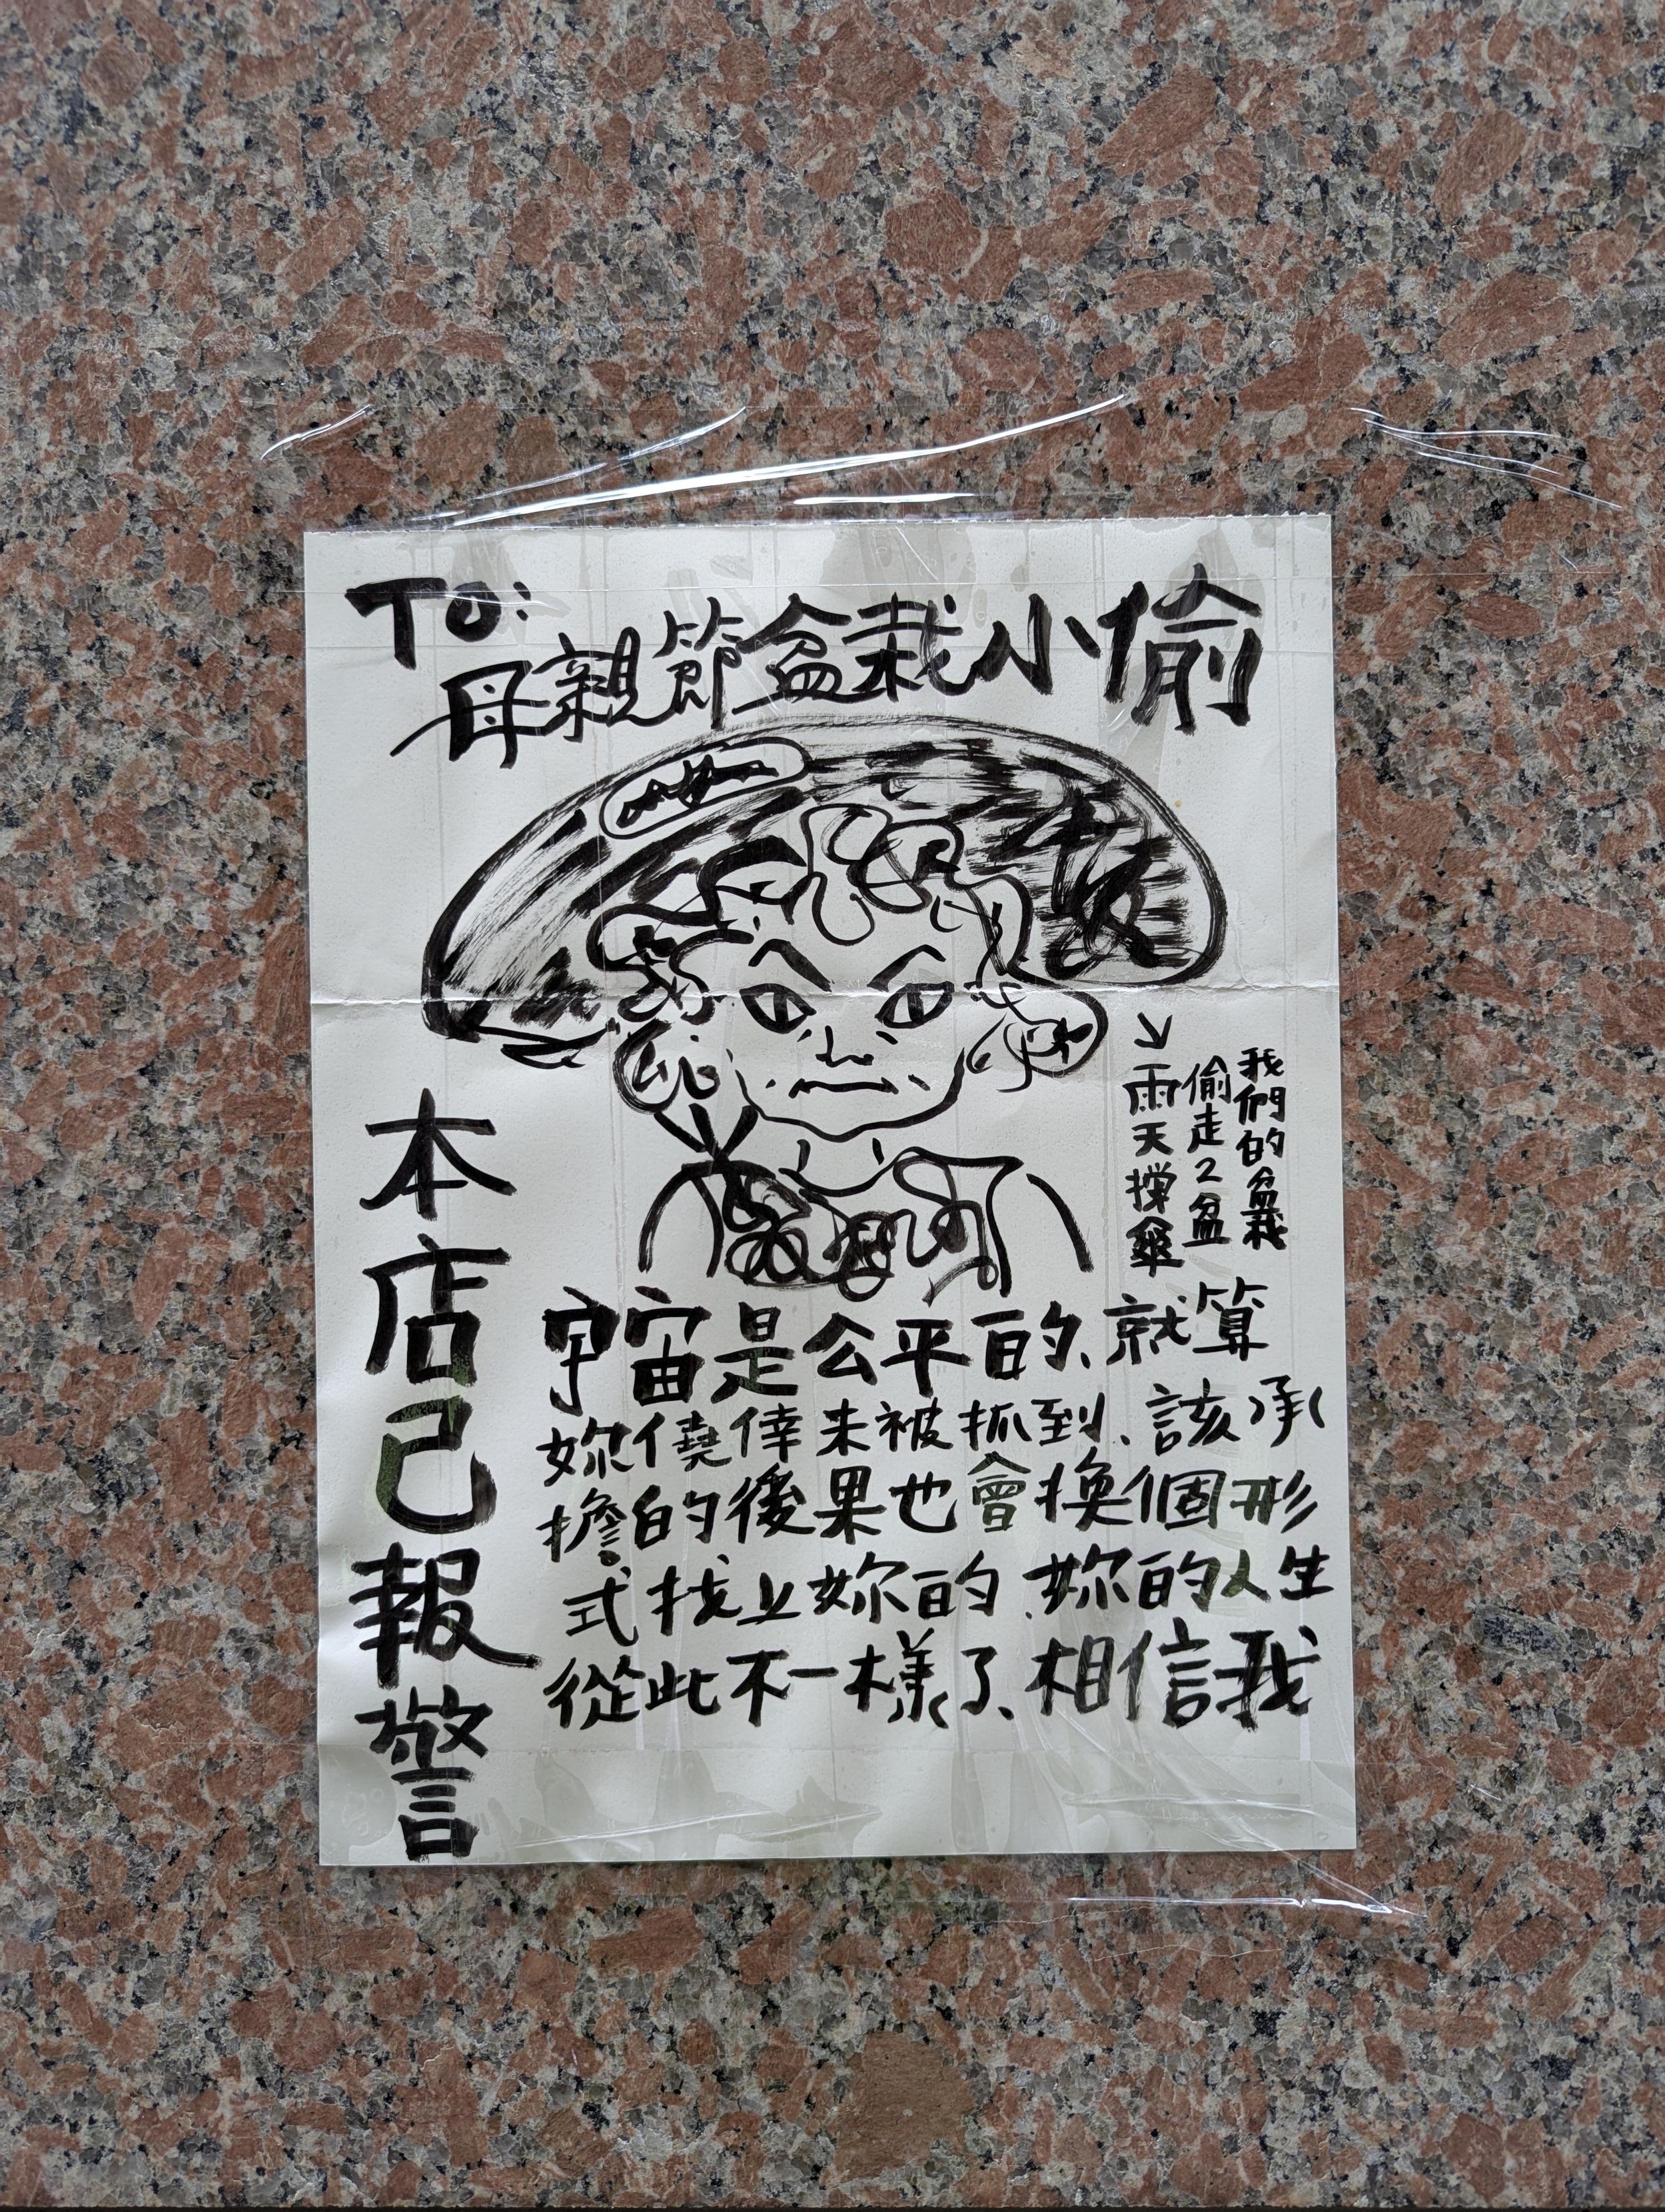 TO:
母親節盆栽小偷
我們的盆栽
偷走2盆
雨天撐傘
本店己報警
宇宙是公平的、就算
妳僥倖未被抓到、該承
擔的後果也會換個形
式找上妳的、妳的人生
從此不一樣了、相信我